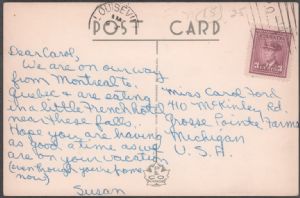 LOUISEVI
(15) 25
POST CARD
Dear Carol,
We are on our way
from Montreal to
Quebec & are eating
in a little French hotel
near these falls.
Hope you are having
as good a time as we
are on your vacation
(even though you're home
now)
Susan
Miss Carol Ford
410 McKinley Rd.
Grosse Pointe Farms
Michigan
U.S.A.